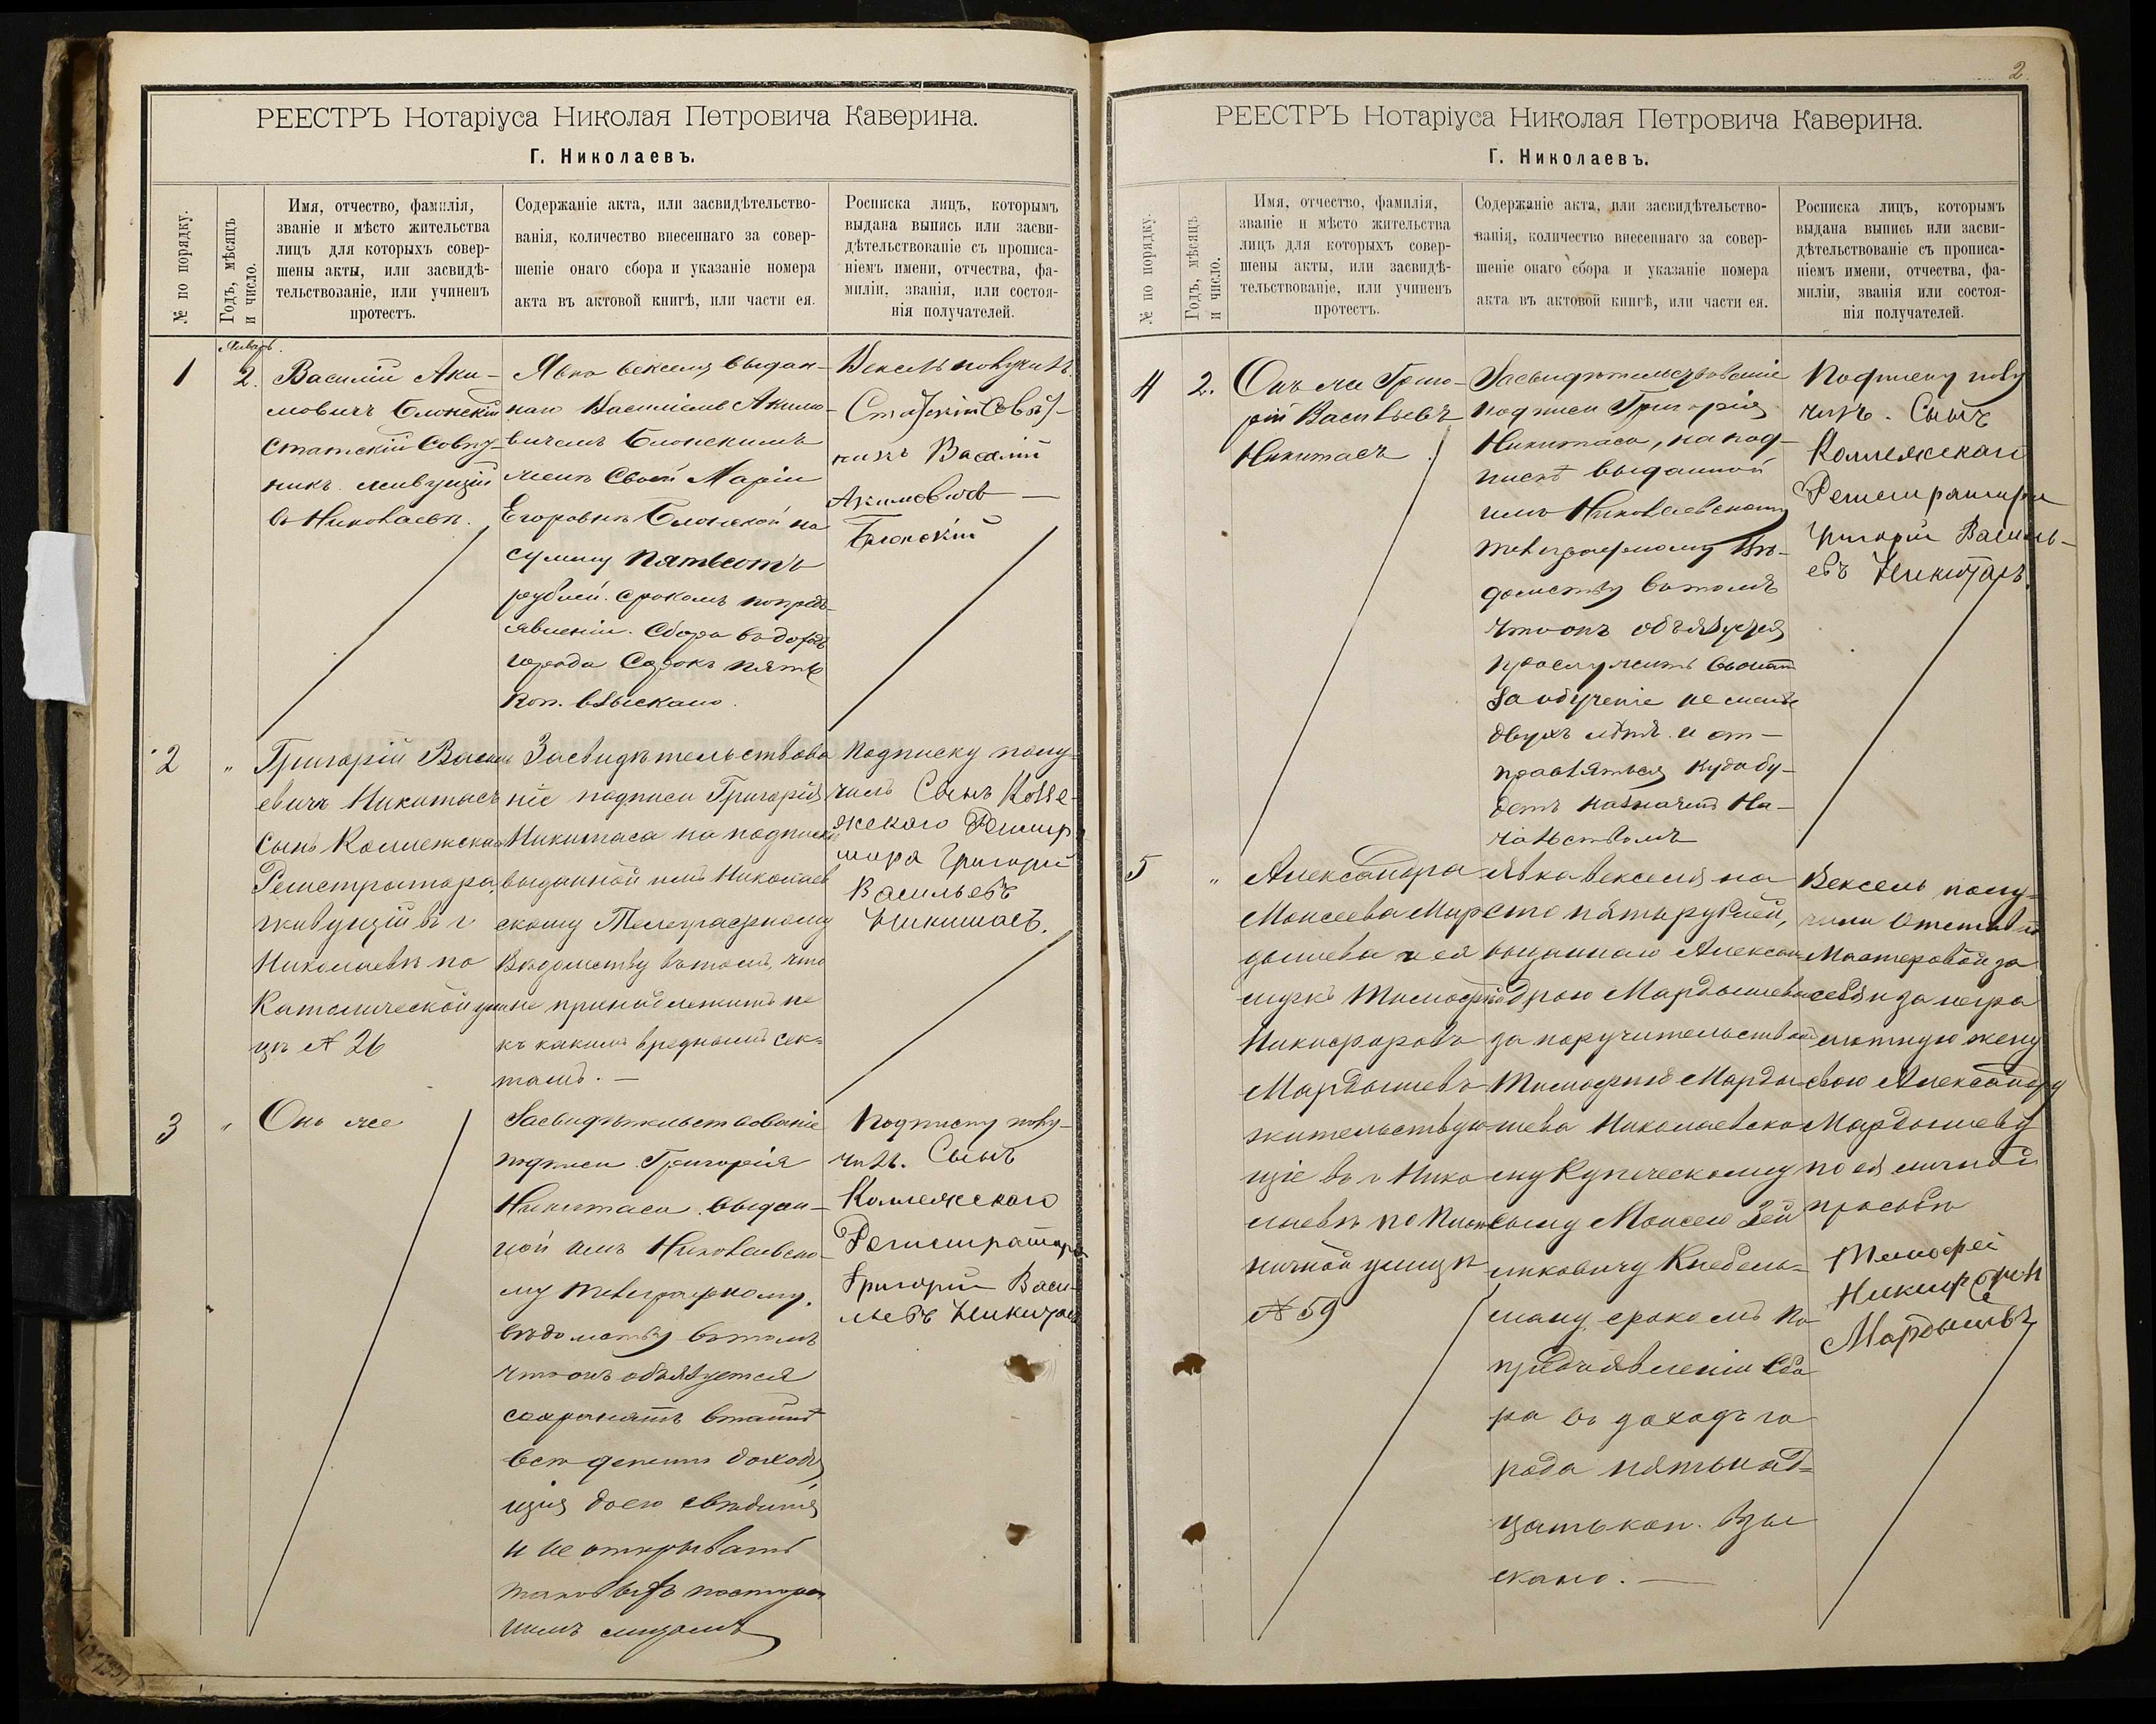 РЕЕСТРЪ Нотаріуса Николая Петровича Каверина.
Г. Николаевъ.
№ по порядку.
Годъ, мѣсяцъ
и число.
Имя, отчество, фамилія,
званіе и мѣсто жительства
лицъ для которыхъ совер-
шены акты, или засвидѣ-
тельствованіе, или учиненъ
протестъ.
Содержаніе акта, или засвидѣтельство-
ванія, количество внесеннаго за совер-
шеніе онаго сбора и указаніе номера
акта въ актовой книгѣ, или части ея.
Росписка лицъ, которымъ
выдана выпись или засви-
дѣтельствованіе съ прописа-
ніемъ имени, отчества, фа-
миліи, званія, или состоя-
нія получателей.
Январь.
1
2.
Василій Аки-
мовичъ Блонскій
Статскій Совѣт-
никъ живущій
въ Николаевѣ.
Явка векселя выдан-
наго Василіемъ Акимо-
вичемъ Блонскимъ
женѣ своей Маріи
Егоровнѣ Блонской на
сумму пятьсотъ
рублей. срокомъ попредъ-
явленіи. Сбора въ доходъ
города Сорокъ пять
коп. взыскано.
Вексель получилъ
Статскій Совѣт-
никъ Василій
Акимовичъ
Блонскій
2
"
Григорій Василь
евичъ Никитасъ
сынъ Коллежскаго
Регистратора,
живущій въ г
Николаевѣ по
Католической ули
цѣ № 26
Засвидѣтельствова
ніе подписи Григорія
Никитаса на подпискѣ
выданной имъ Николаев
скому Телеграфному
Вѣдомству въ томъ, что
не принадлежитъ не
къ какимъ вреднымъ сек-
тамъ. —
Подписку полу-
чилъ Сынъ Колле-
жскаго Регистра
тора Григорій
Васильевъ
Никитасъ.
3
"
Онъ же
Засвидѣтельствованіе
подписи Григорія
Никитаса выдан-
ной имъ Николаевско-
му телеграфному.
вѣдомству въ томъ
что онъ обязуется
сохранять втайнѣ
всѣ депеши доходя
щія до его свѣдѣнія
и не открывать
таковыхъ посторон
нимъ лицамъ
Подписку полу-
чилъ. Сынъ
Коллежскаго
Регистратора
Григорій Васи-
льевъ Никитасъ
2
РЕЕСТРЪ Нотаріуса Николая Петровича Каверина.
Г. Николаевъ.
№ по порядку.
Годъ, мѣсяцъ
и число.
Имя, отчество, фамилія,
званіе и мѣсто жительства
лицъ для которыхъ совер-
шены акты, или засвидѣ-
тельствованіе, или учиненъ
протестъ.
Содержаніе акта, или засвидѣтельство-
ванія, количество внесеннаго за совер-
шеніе онаго сбора и указаніе номера
акта въ актовой книгѣ, или части ея.
Росписка лицъ, которымъ
выдана выпись или засви-
дѣтельствованіе съ прописа-
ніемъ имени, отчества, фа-
миліи, званія или состоя-
нія получателей.
4
2.
Онъ же Григо-
рій Васильевъ
Никитасъ
Засвидѣтельствованіе
подписи Григорія
Никитаса, на под-
пискѣ выданной
имъ Николаевскому
телеграфному Вѣ-
домству въ томъ
что онъ обязуется
прослужить
за обученіе не менѣе
двухъ лѣтъ и от-
правляться куда бу-
детъ назначенъ На-
чальствомъ
Подписку полу
чилъ. Сынъ
Коллежскаго
Регистратора
Григорій Василь-
евъ Никитасъ.
5
"
Александра
Моисеева Мар
дышева и ея
мужъ Тимофей
Никифоровъ
Мардышевъ
жительствую-
щіе въ г Нико
лаевѣ по
ничной улицѣ
№ 59
Явка векселя на
сто пять рублей,
выданнаго Алексан
дрою Мардышевою
за поручительствомъ
Тимофея Марды-
шева Николаевско
му Купеческому
сыну Моисею Зей
ликовичу Кнебель-
ману срокомъ по
предъявленіи Сбо
ра въ доходъ го
рода пятьнад-
цать коп. взы
скано. —
Вексель полу-
чили Отставной
Мастеровой за
себя и за негра
мотную жену
свою Александру
Мардышеву
по ея личной
просьбѣ
Тимофей
Никифоровъ
Мардышевъ